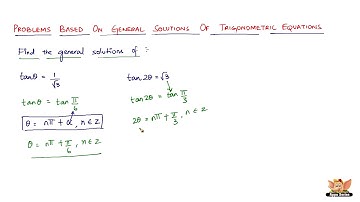 Problems Based On General Solutions Of Trigonometric Equations
Find the general solutions of :
tanθ = 1/√3
tanθ = tan π/6
θ = nπ + α, n ∈ Z
θ = nπ + π/6, n ∈ Z
tan2θ = √3
tan2θ = tan π/3
2θ = nπ + π/3, n ∈ Z